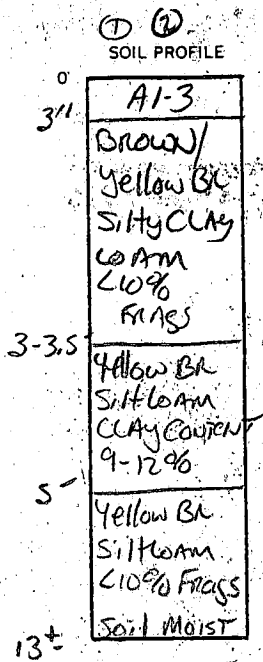 ① ②
SOIL PROFILE
0'
A1-3
3"
BROWN/
Yellow BR
Silty CLAY
LOAM
<10%
FRAGS
3-3.5'
Yellow BR
Silt LOAM
CLAY CONTENT
9-12%
5'
Yellow BR
Silt LOAM
<10% Frags
Soil Moist
13'±